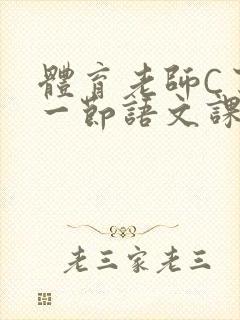 體育老師C
一節語文課
老三家老三